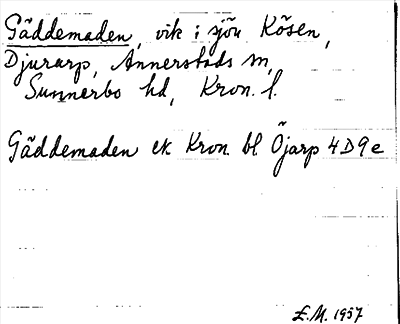 Gäddemaden, vik i sjön Kösen,
Djurarp, Annerstads sn,
Sunnerbo hd, Kron. l.
Gäddemaden ek Kron. bl Öjarp 4D9e
E.M. 1957